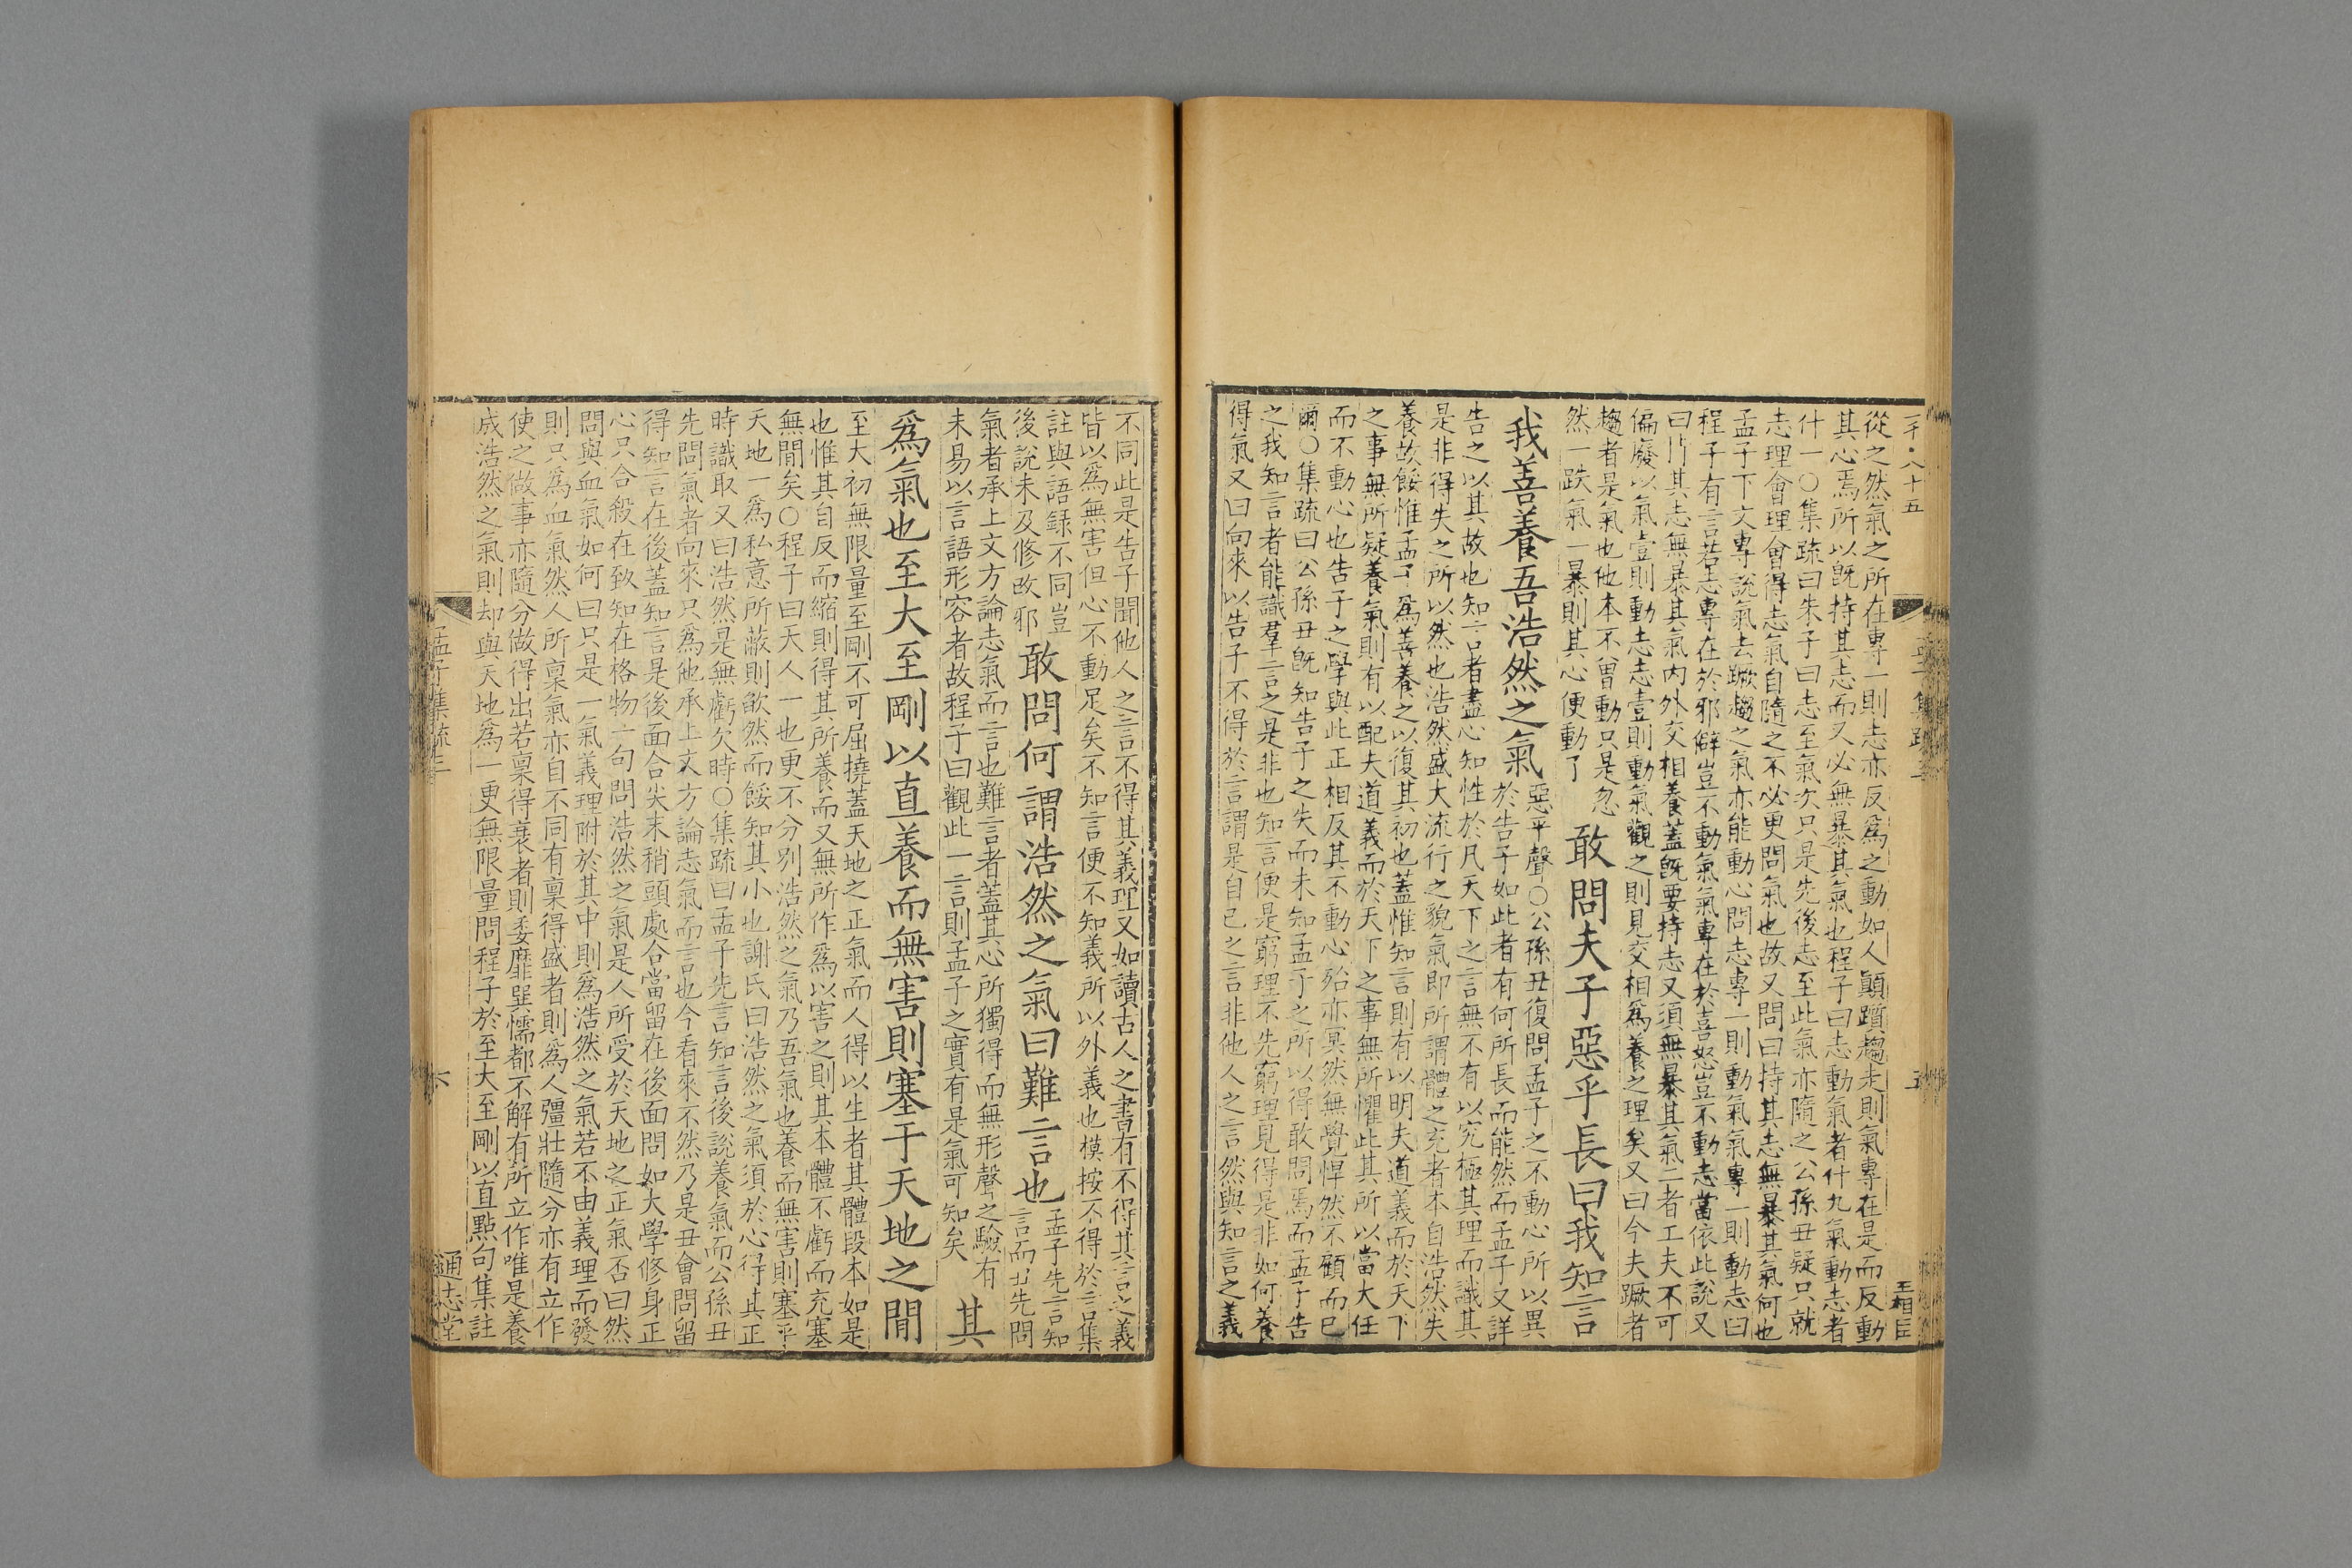 從之然氣之所在專一則志亦反爲之動如人顚躓趨走則氣專在是而反動
其心焉所以旣持其志而又必無暴其氣也程子曰志動氣者什九氣動志者
什一○集疏曰朱子曰志至氣次只是先後志至此氣亦隨之公孫丑疑只就
志理會理會得志氣自隨之不必更問氣也故又問曰持其志無暴其氣何也
孟子下文專說氣去蹶趨之氣亦能動心問志專一則動氣氣專一則動志曰
程子有言若志專在於邪僻豈不動氣氣專在於喜怒豈不動志當依此說又
曰持其志無暴其氣內外交相養蓋旣要持志又須無暴其氣二者工夫不可
偏廢以氣壹則動志志壹則動氣觀之則見交相爲養之理矣又曰今夫蹶者
趨者是氣也他本不曾動只是忽
然一跌氣一暴則其心便動了
敢問夫子惡乎長曰我知言
我善養吾浩然之氣
惡平聲○公孫丑復問孟子之不動心所以異
於告子如此者有何所長而能然而孟子又詳
告之以其故也知言者盡心知性於凡天下之言無不有以究極其理而識其
是非得失之所以然也浩然盛大流行之貌氣即所謂體之充者本自浩然失
養故餒惟孟子爲善養之以復其初也蓋惟知言則有以明夫道義而於天下
之事無所疑養氣則有以配夫道義而於天下之事無所懼此其所以當大任
而不動心也告子之學與此正相反其不動心殆亦冥然無覺悍然不顧而已
爾○集疏曰公孫丑旣知告子之失而未知孟子之所以得敢問焉而孟子告
之我知言者能識羣言之是非也知言便是窮理不先窮理見得是非如何養
得氣又曰向來以告子不得於言謂是自己之言非他人之言然與知言之義
不同此是告子聞他人之言不得其義理又如讀古人之書有不得其言之義
皆以爲無害但心不動足矣不知言便不知義所以外義也模按不得於言集
註與語錄不同豈
後說未及修改邪
敢問何謂浩然之氣曰難言也
孟子先言知
言而丑先問
氣者承上文方論志氣而言也難言者蓋其心所獨得而無形聲之驗有
未易以言語形容者故程子曰觀此一言則孟子之實有是氣可知矣
其
爲氣也至大至剛以直養而無害則塞于天地之閒
至大初無限量至剛不可屈撓蓋天地之正氣而人得以生者其體段本如是
也惟其自反而縮則得其所養而又無所作爲以害之則其本體不虧而充塞
無閒矣○程子曰天人一也更不分別浩然之氣乃吾氣也養而無害則塞乎
天地一爲私意所蔽則欿然而餒知其小也謝氏曰浩然之氣須於心得其正
時識取又曰浩然是無虧欠時○集疏曰孟子先言知言後說養氣而公孫丑
先問氣者向來只爲他承上文方論志氣而言也今看來不然乃是丑會問留
得知言在後蓋知言是後面合尖末稍頭處合當留在後面問如大學修身正
心只合殺在致知在格物一句問浩然之氣是人所受於天地之正氣否曰然
問與血氣如何曰只是一氣義理附於其中則爲浩然之氣若不由義理而發
則只爲血氣然人所稟氣亦自不同有稟得盛者則爲人彊壯隨分亦有立作
使之做事亦隨分做得出若稟得衰者則委靡巽懦都不解有所立作唯是養
成浩然之氣則却與天地爲一更無限量問程子於至大至剛以直點句集註
孟子集疏三
六
通志堂